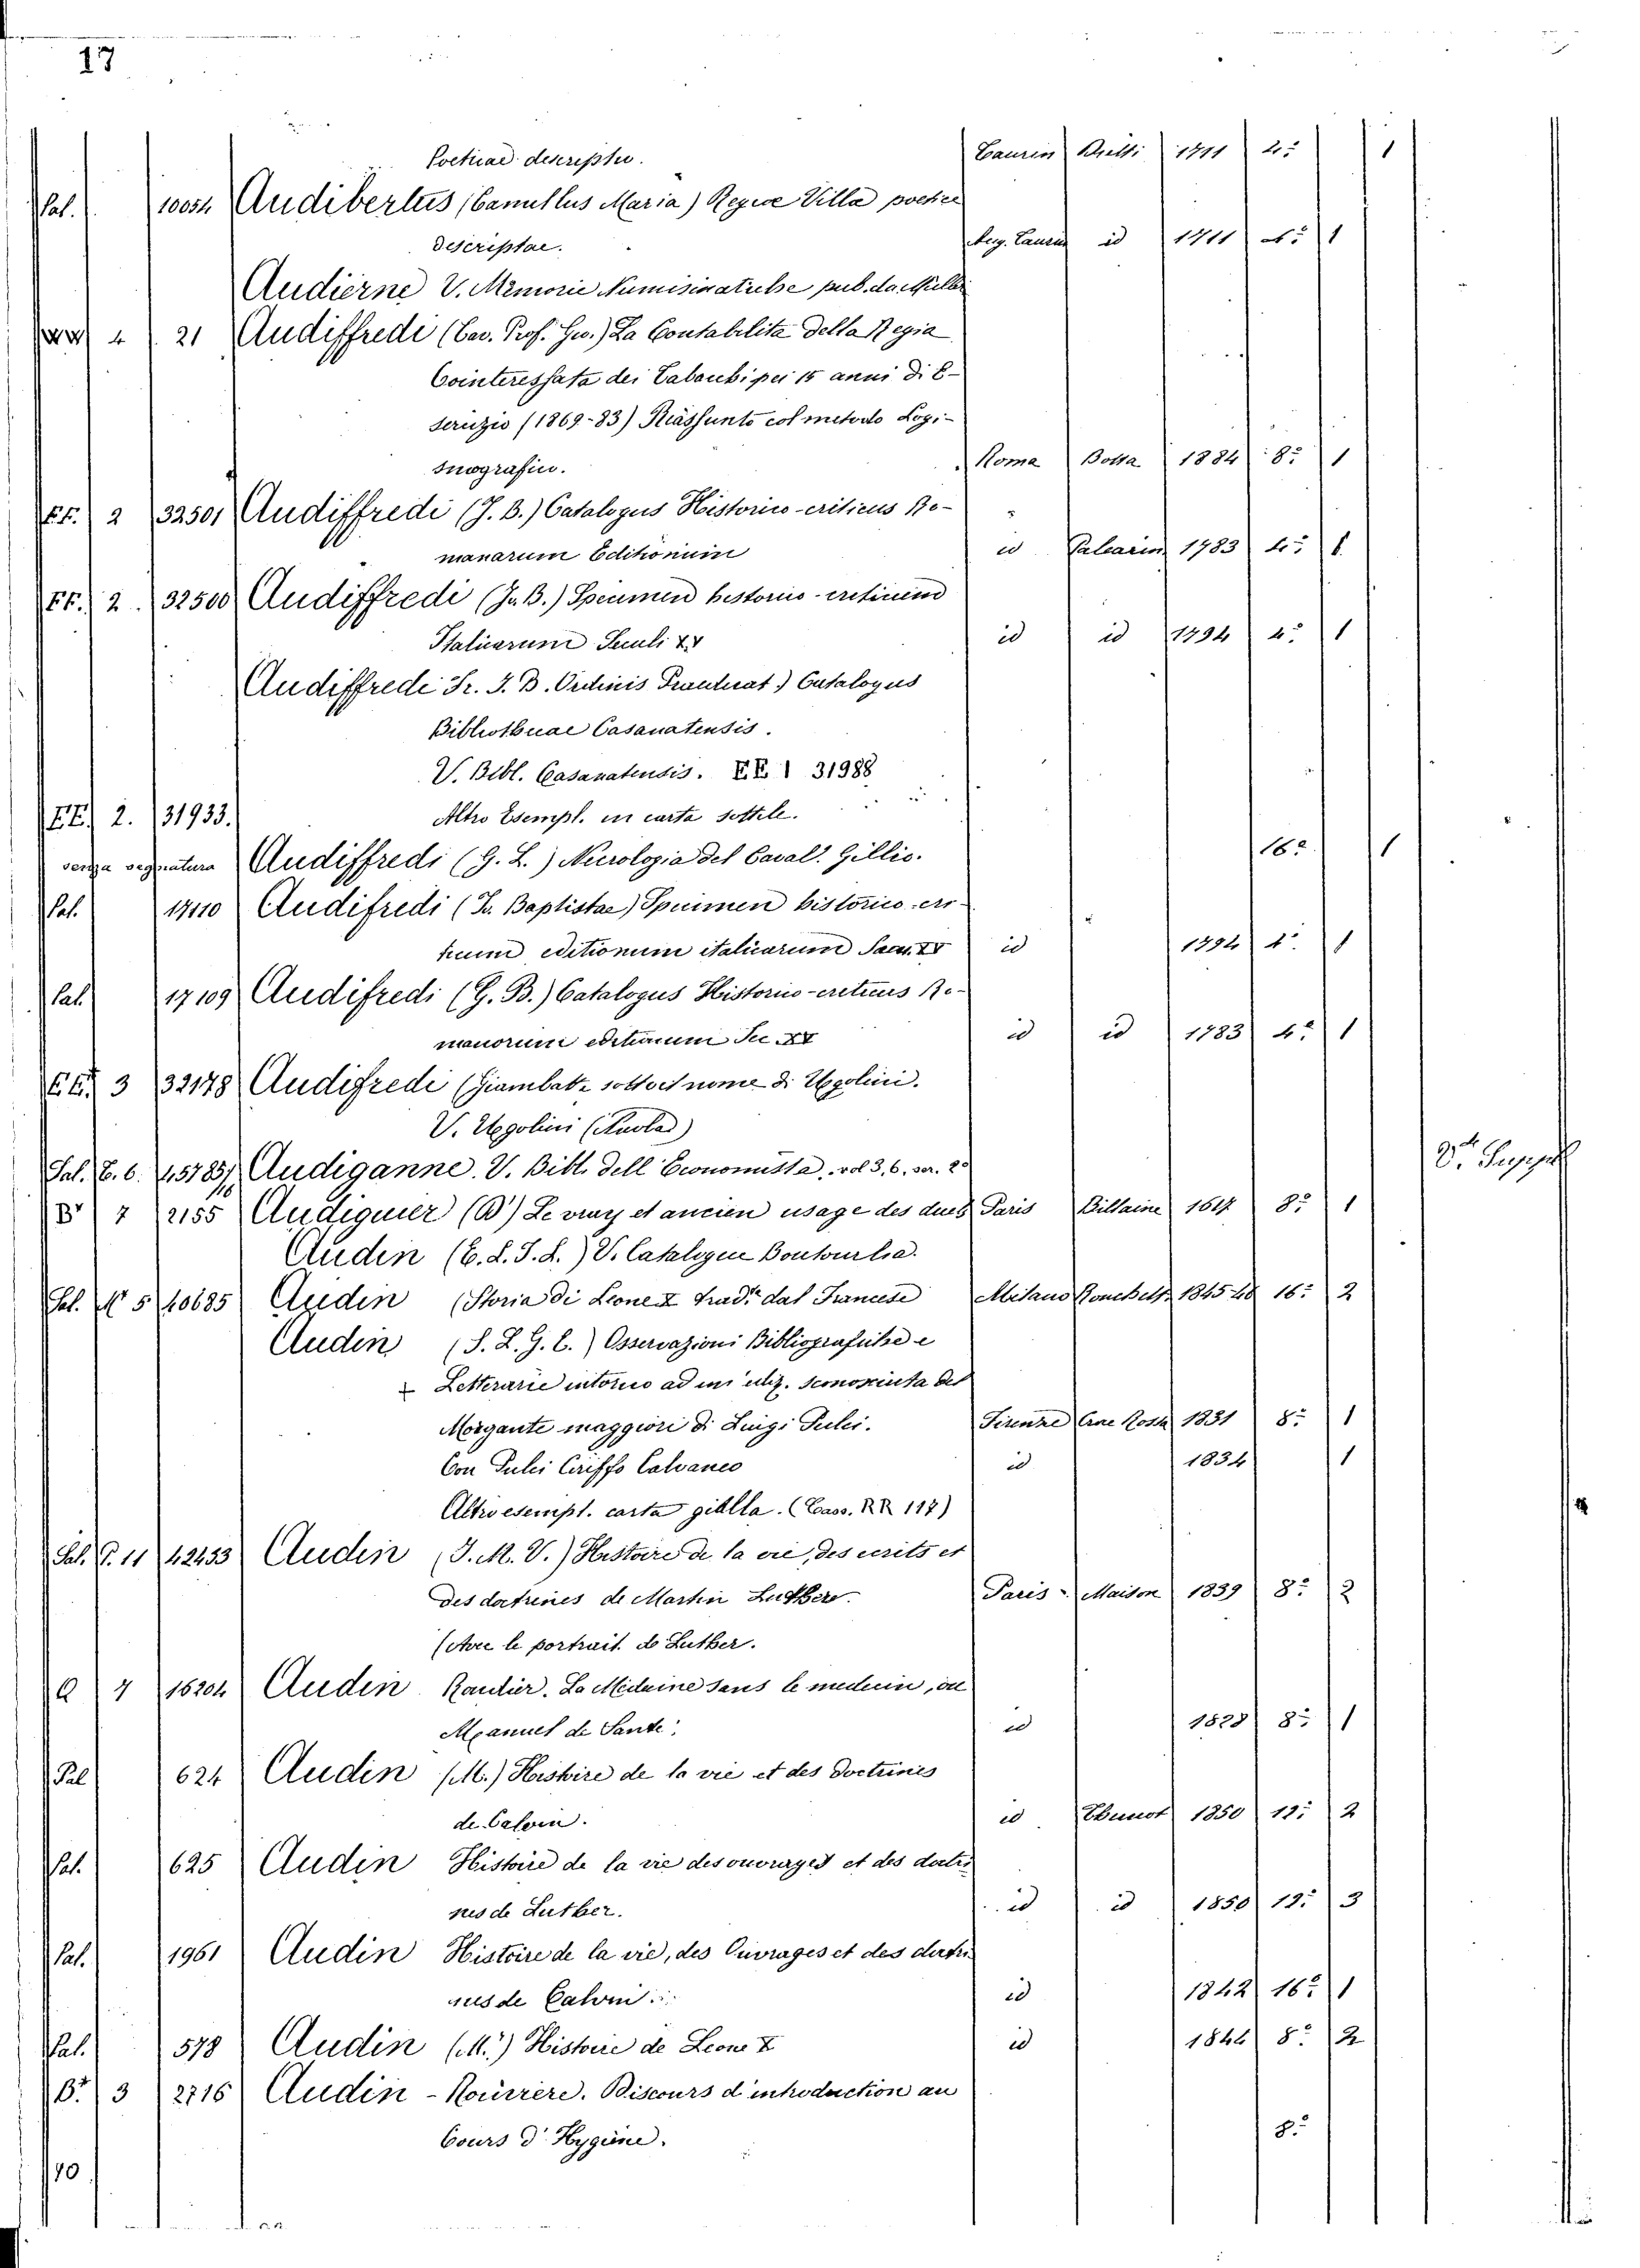 17
Poeticae descriptio. Taurin 1711 4° 1
Pal. 10054 Audibertus (Camillus Maria) Regiae Villae poetice
descriptae. Aug. Taurin id 1711 4° 1
Audierne V. Memorie Numismatiche pub. da Müller
4 21 Audiffredi (Cav. Prof. Gio.) La Contabilità della Regia
Cointeressata dei Tabacchi pei 15 anni di E-
sercizio (1869-83) Riassunto col metodo Logi-
smografico. Roma Botta 1884 8° 1
EE. 2 32501 Audiffredi (J. B.) Catalogus Historico-criticus Ro-
manarum Editionum id Palearin 1783 4° 1
EE. 2. 32500 Audiffredi (Jo. B.) Specimen historico-criticum
Italicarum Seculi XV id id 1794 4° 1
Audiffredi Fr. J. B. Ordinis Praedicat.) Catalogus
Bibliothecae Casanatensis.
V. Bibl. Casanatensis. EE 1 31988
EE 2. 31933. Altro Esempl. in carta sottile.
senza segnatura Audiffredi (G. L.) Necrologia del Caval. Gillio. 16° 1
Pal. 17110 Audifredi (Jo. Baptistae) Specimen historico-cri-
ticum editionum italicarum Saec. XV id 1794 4° 1
Pal. 17109 Audifredi (G. B.) Catalogus Historico-creticus Ro-
manorum editionum Sec XV id id 1783 4° 1
EE. 3 32178 Audifredi (Giambatta sotto il nome di Ugolini.
V. Ugolini
Sal. E. 6. 45785/16 Audiganne. V. Bibl. dell Economista, vol 3, 6, ser. 2a V. Suppl
B 7 2155 Audiguier (D') Le vray et ancien usage des duels Paris Billaine 1617 8° 1
Audin (E. L. S. L.) V. Catalogue Boutourlin.
Sal. N 5 40685 Audin (Storia di Leone X trad. dal Francese Milano 1845-48 16° 2
Audin (S. L. G. E.) Osservazioni Bibliografiche e
+ Letterarie intorno ad un' ediz. sconosciuta del
Morgante maggiore di Luigi Pulci. Firenze 1831 8° 1
Con Pulci Ciriffo Calvaneo id 1834 1
Altro esempl. carta gialla. (Cass. RR 117)
Sal. P. 11 42453 Audin (J. M. V.) Histoire de la vie, des ecrits et
des doctrines de Martin Luther. Paris Maison 1839 8° 2
(Avec le portrait de Luther.
Q 7 16204 Audin Rouvier. La Médecine sans le medecin, ou
Manuel de Santé. id 1828 8° 1
Pal 624 Audin (M.) Histoire de la vie et des doctrines
de Calvin. id 1850 12° 2
Pal. 625 Audin Histoire de la vie des ouvrages et des doctri
nes de Luther. id id 1850 12° 3
Pal. 1961 Audin Histoire de la vie, des Ouvrages et des doctri
nes de Calvin id 1842 16° 1
Pal. 578 Audin (M.r) Histoire de Leone X id 1846 8° 2
B. 3 2716 Audin - Rouvière. Discours d'introduction au
Cours d'Hygiène. 8°